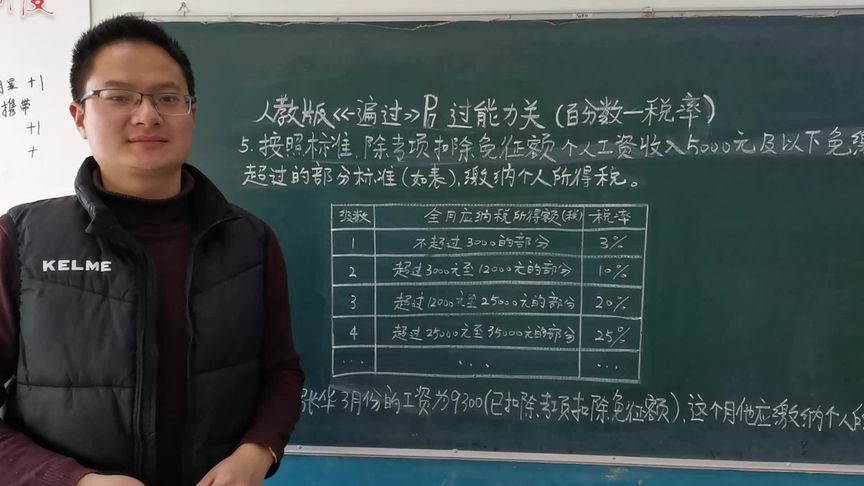 +1
携带
+1
+
KELME
人教版《一遍过》P 过能力关(百分数一税率)
5.按照标准,除专项扣除免征额个人工资收入5000元及以下免
超过的部分标准(如表),缴纳个人所得税。
级数 全月应纳税所得额(税) 税率
1 不超过3000的部分 3%
2 超过3000元至12000元的部分 10%
3 超过12000元至25000元的部分 20%
4 超过25000元至35000元的部分 25%
... ... ...
张华3月份的工资为9300(已扣除专项扣除免征额),这个月他应缴纳个人